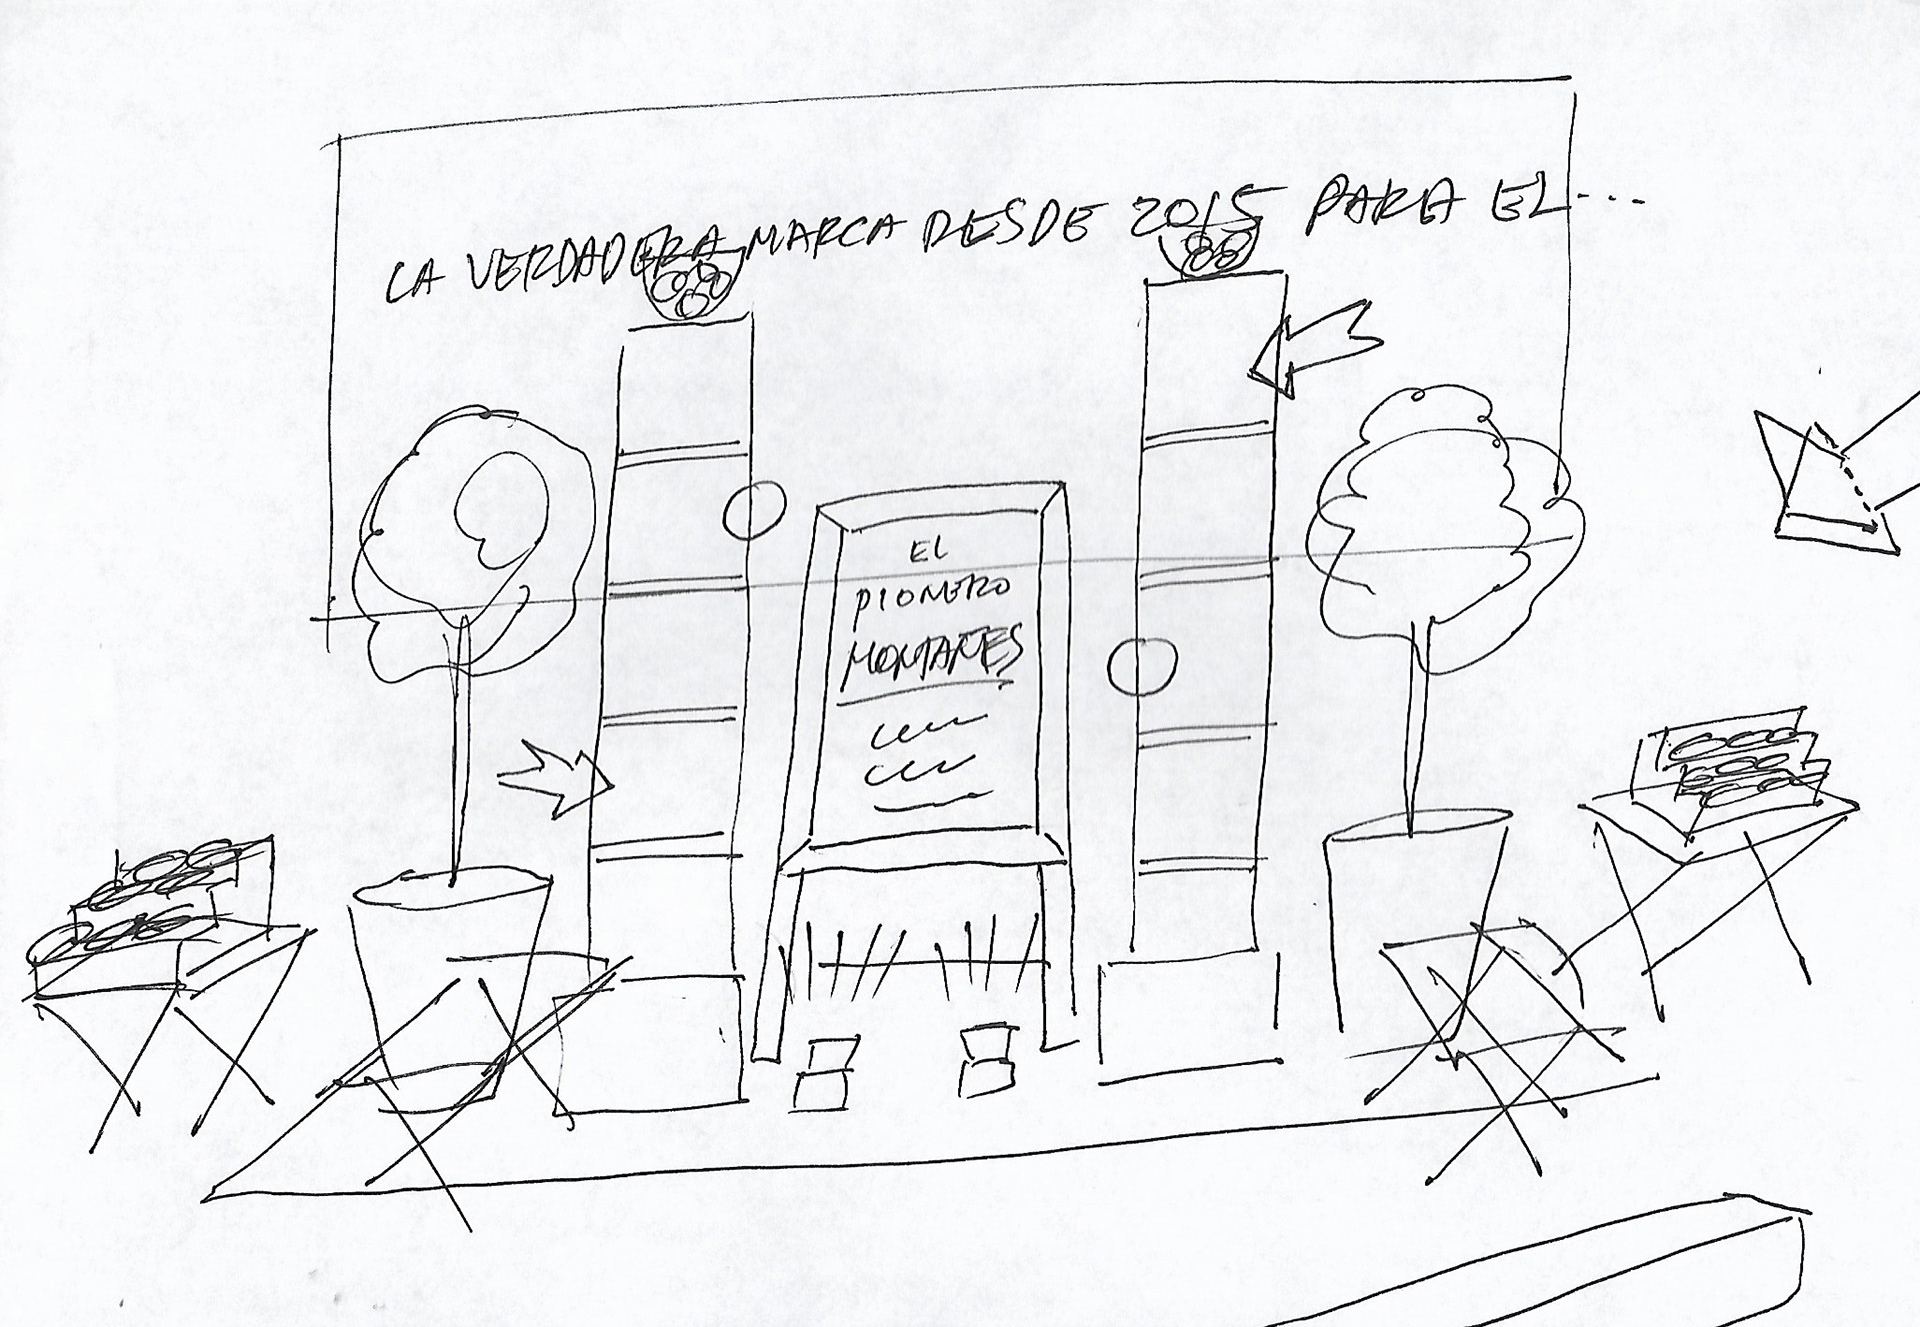 LA VERDADERA MARCA DESDE 2015 PARA EL...
EL
PIONERO
MONTAÑES